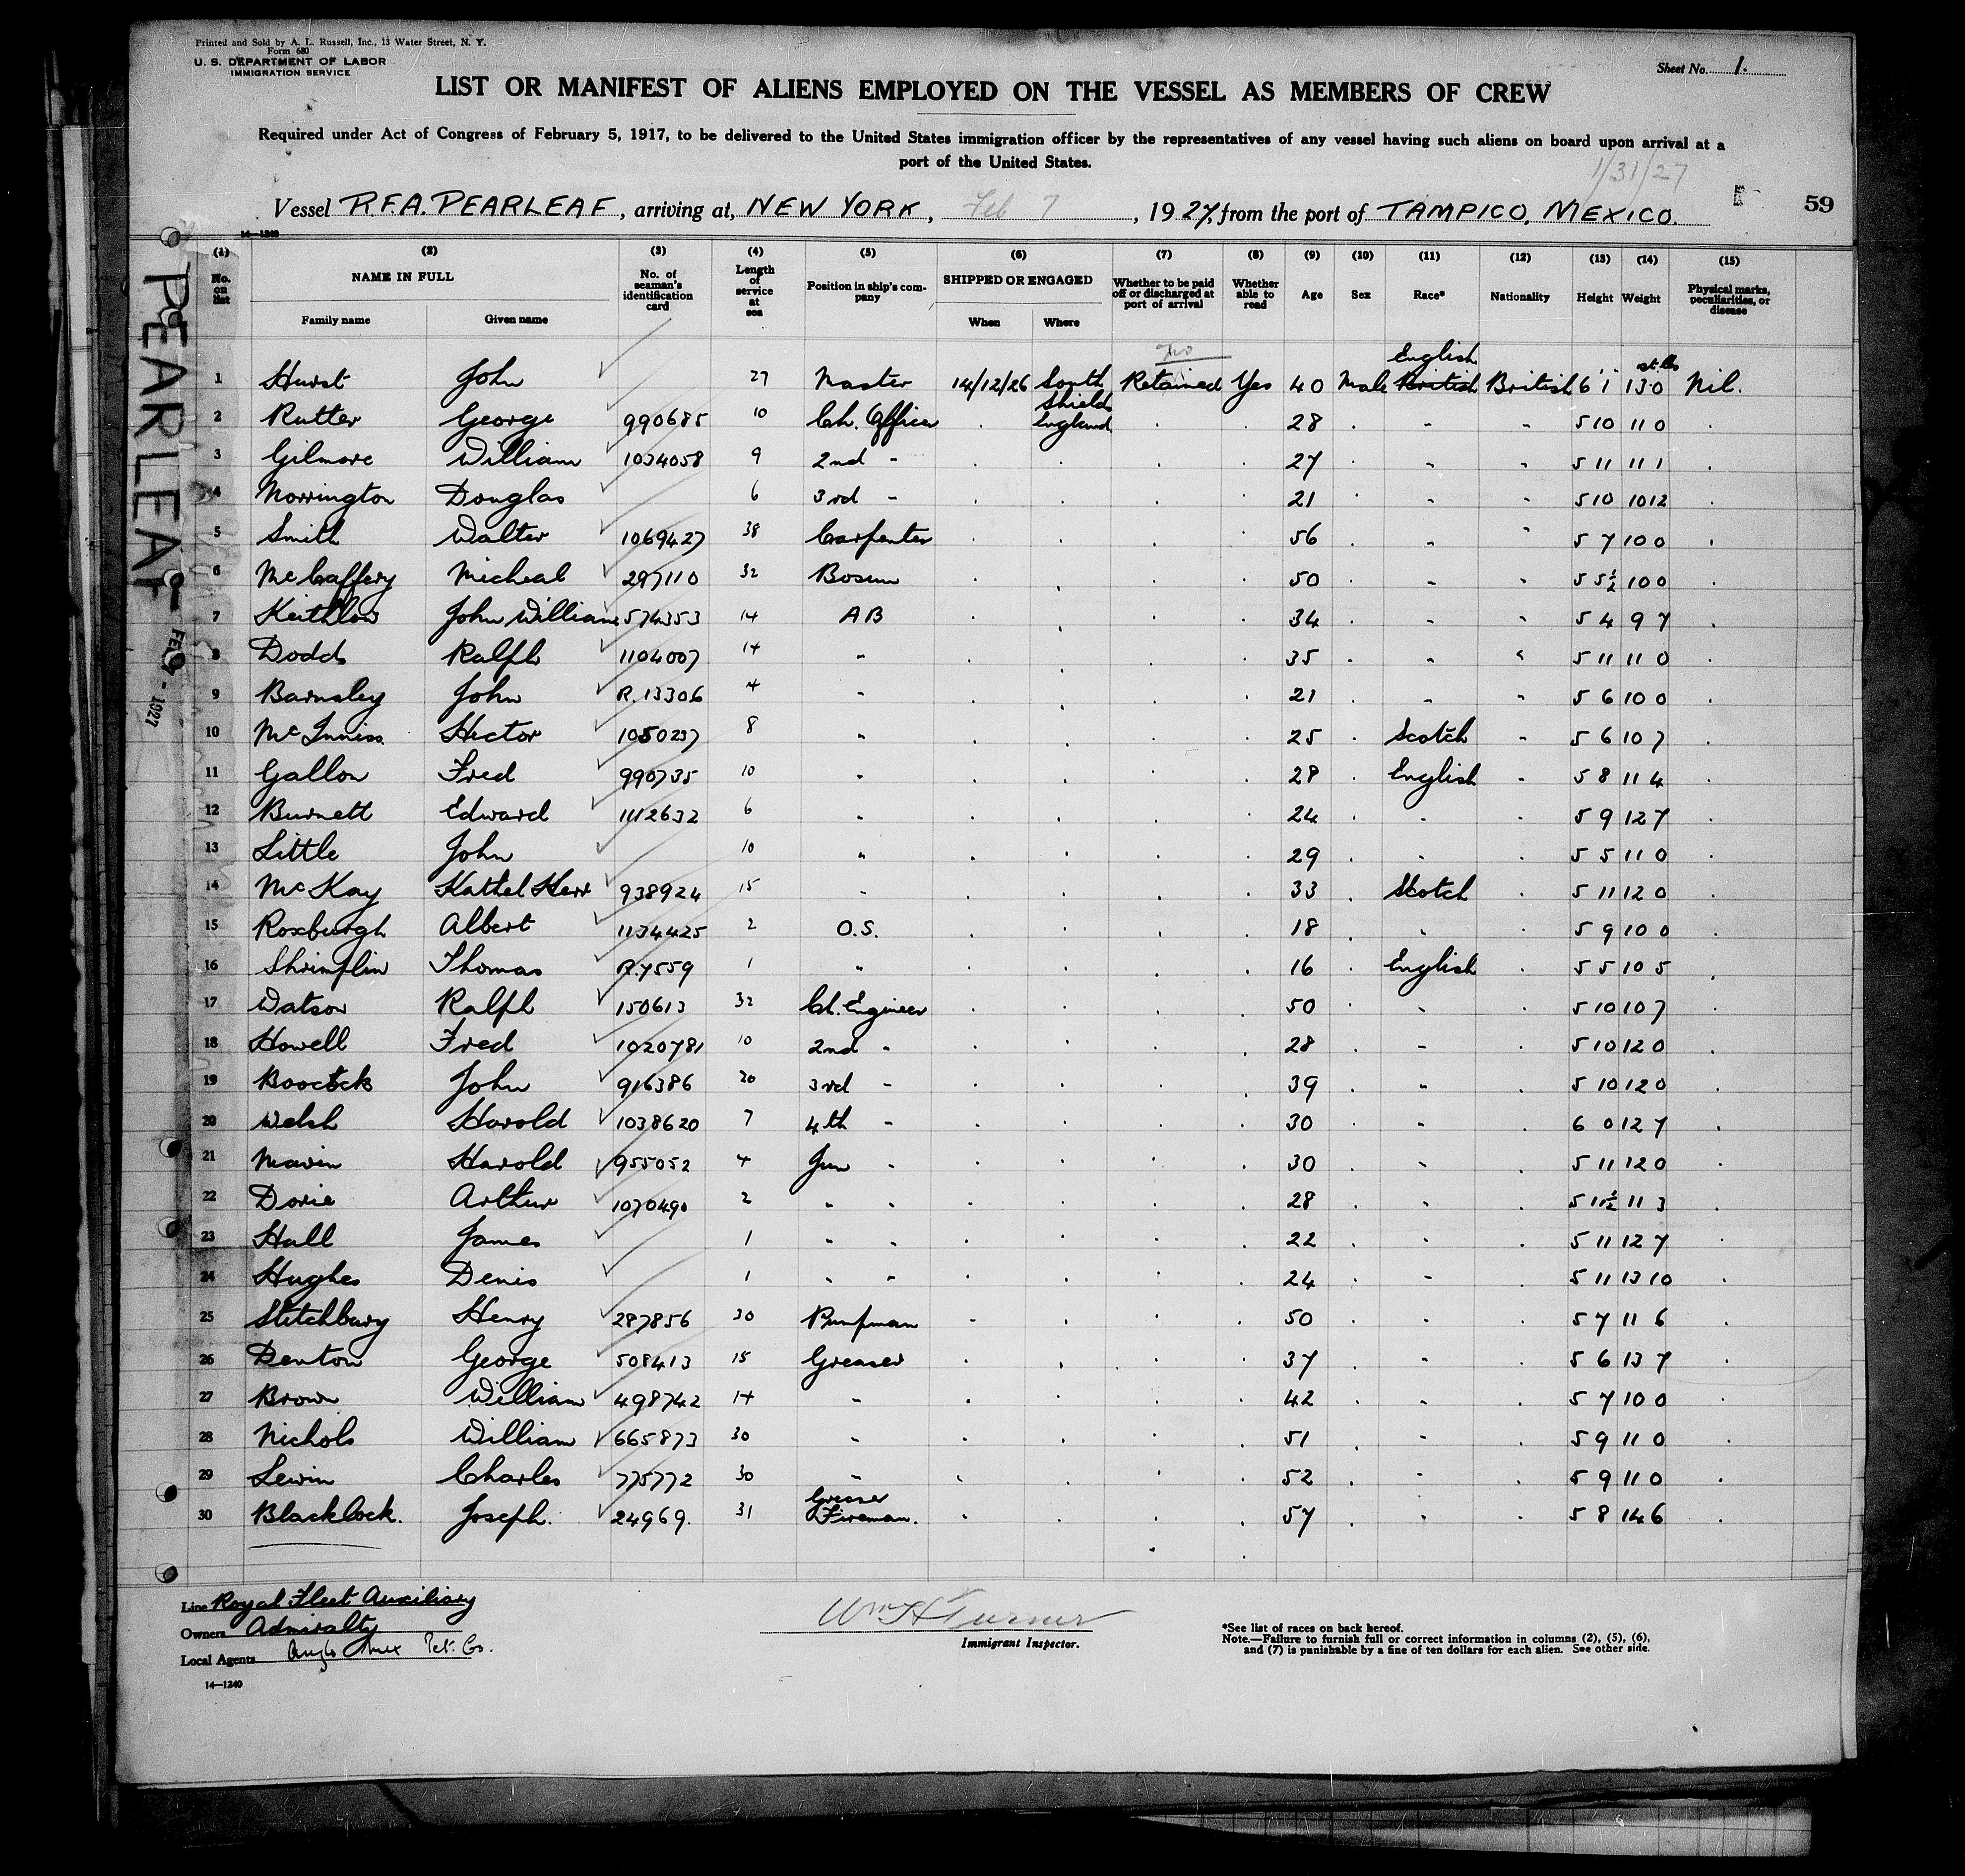 Printed and Sold by A. L. Russell, Inc., 13 Water Street, N. Y.
Form 680
U. S. DEPARTMENT OF LABOR
IMMIGRATION SERVICE
Sheet No. 1.
LIST OR MANIFEST OF ALIENS EMPLOYED ON THE VESSEL AS MEMBERS OF CREW
Required under Act of Congress of February 5, 1917, to be delivered to the United States immigration officer by the representatives of any vessel having such aliens on board upon arrival at a
port of the United States.
1/31/27
Vessel R.F.A. PEARLEAF, arriving at, NEW YORK, Feb 7, 1927, from the port of TAMPICO, MEXICO.
59
14—1240
(1) (2) (3) (4) (5) (6) (7) (8) (9) (10) (11) (12) (13) (14) (15)
No. on list NAME IN FULL No. of seaman's identification card Length of service at sea Position in ship's company SHIPPED OR ENGAGED Whether to be paid off or discharged at port of arrival Whether able to read Age Sex Race* Nationality Height Weight Physical marks, peculiarities, or disease
Family name Given name When Where
1 Hurst John 27 Master 14/12/26 South Shields England Retained Yes 40 Male British English British 6 1 st lbs 13 0 Nil.
2 Rutter George 990685 10 Ch. Officer 28 " " 5 10 11 0
3 Gilmore William 1034058 9 2nd " 27 " " 5 11 11 1
4 Norrington Douglas 6 3rd " 21 " " 5 10 10 12
5 Smith Walter 1069427 38 Carpenter 56 " " 5 7 10 0
6 McCaffery Micheal 297110 32 Bosun 50 " " 5 5½ 10 0
7 Keithlow John William 574353 14 AB 34 " " 5 4 9 7
8 Dodds Ralph 1104007 14 " 35 " " 5 11 11 0
9 Barnsley John R.13306 4 " 21 " " 5 6 10 0
10 McInniss Hector 1050237 8 " 25 Scotch " 5 6 10 7
11 Gallon Fred 990735 10 " 28 English " 5 8 11 4
12 Burnett Edward 1112632 6 " 24 " " 5 9 12 7
13 Little John 10 " 29 " " 5 5 11 0
14 McKay 938924 15 " 33 Scotch " 5 11 12 0
15 Roxburgh Albert 1134425 2 O.S. 18 " " 5 9 10 0
16 Shrimplin Thomas R.7559 1 " 16 English " 5 5 10 5
17 Watson Ralph 150613 32 Ch. Engineer 50 " " 5 10 10 7
18 Howell Fred 1020781 10 2nd " 28 " " 5 10 12 0
19 Boocock John 916386 20 3rd " 39 " " 5 10 12 0
20 Welsh Harold 1038620 7 4th " 30 " " 6 0 12 7
21 Mavin Harold 955052 4 Jun " 30 " " 5 11 12 0
22 Dorie Arthur 1070490 2 " " 28 " " 5 11½ 11 3
23 Hall James 1 " " 22 " " 5 11 12 7
24 Hughes Denis 1 " " 24 " " 5 11 13 10
25 Stitchbury Henry 287856 30 Pumpman 50 " " 5 7 11 6
26 Denton George 508413 15 Greaser 37 " " 5 6 13 7
27 Brown William 498742 14 " 42 " " 5 7 10 0
28 Nichols William 665873 30 " 51 " " 5 9 11 0
29 Lewin Charles 775772 30 " 52 " " 5 9 11 0
30 Blacklock. Joseph. 24969. 31 Greaser Fireman. 57 " " 5 8 14 6
Line Royal Fleet Auxiliary
Owners Admiralty
Local Agents Anglo Mex Pet. Co.
14—1240
Wm H Turner
Immigrant Inspector.
*See list of races on back hereof.
Note.—Failure to furnish full or correct information in columns (2), (5), (6),
and (7) is punishable by a fine of ten dollars for each alien. See other side.
PEARLEAF
FEB 9 - 1927